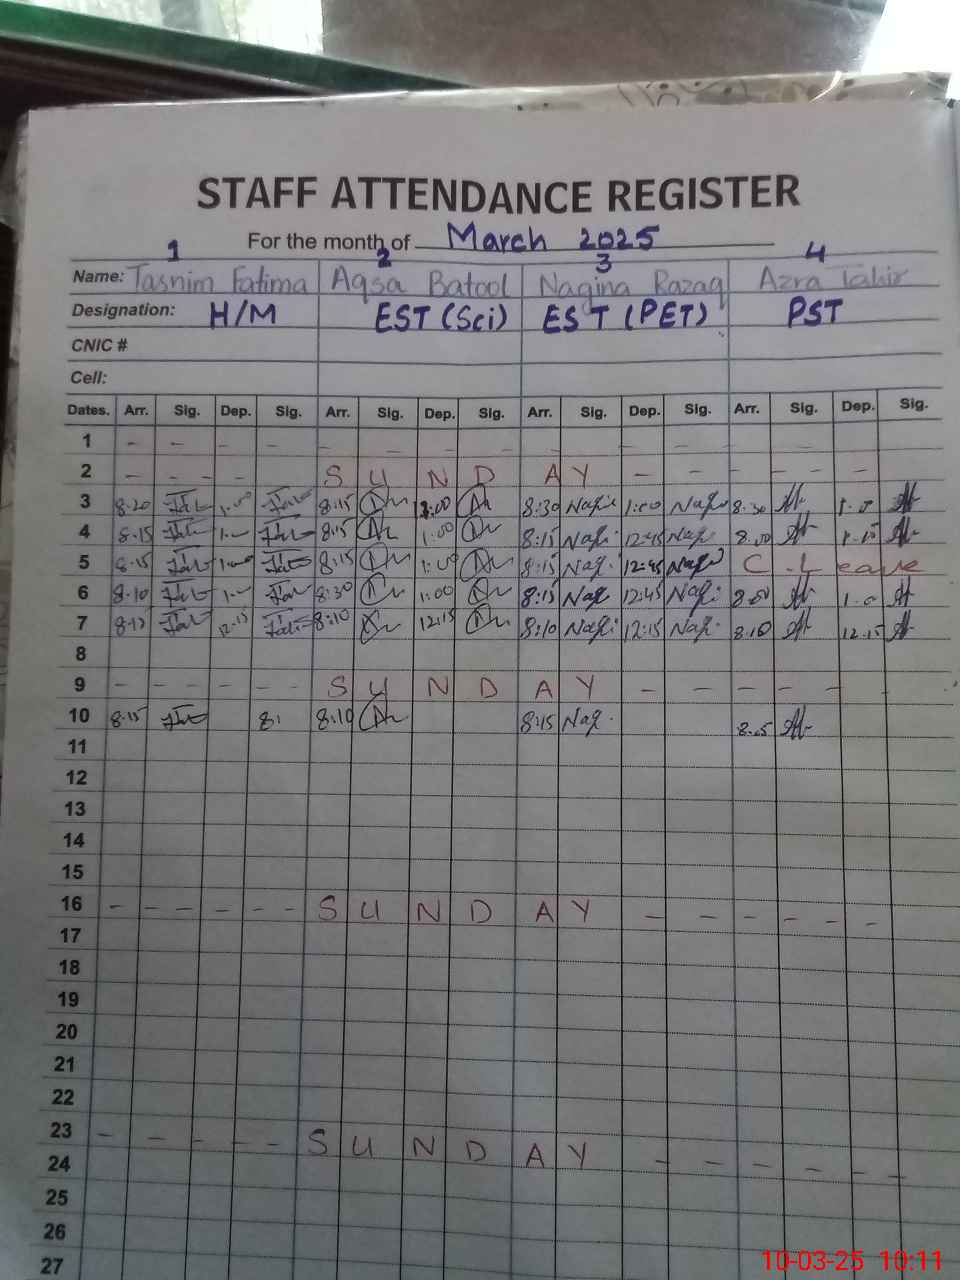 STAFF ATTENDANCE REGISTER
For the month of March 2025
1 2 3 4
Name: Tasnim Fatima Aqsa Batool Nagina Razaq Azra Tahir
Designation: H/M EST (Sci) EST (PET) PST
CNIC #
Cell:
Dates. Arr. Sig. Dep. Sig. Arr. Sig. Dep. Sig. Arr. Sig. Dep. Sig. Arr. Sig. Dep. Sig.
1 - - - - - - - - - - - -
2 - - - - SUNDAY - - - - - -
3 8.20 1:00 8:15 1:00 8:30 1:00 8.30
4 8.15 8:15 1:00 8:15 12:45 8.00
5 8.15 1:00 8:15 1:00 8:15 Nag. 12:45 C. Leave
6 8:10 8:30 1:00 8:15 Nag 12:45 8.00 1.0
7 12:15 8:10 12:15 8:10 12:15 8.10 12.15
8
9 - - - - - SUNDAY - - - - - -
10 8.15 8: 8:10 8:15 Nag. 8.05
11
12
13
14
15
16 - - - - - - SUNDAY - - - - - -
17
18
19
20
21
22
23 - - - - - SUNDAY - - - - - -
24
25
26
27
10-03-25 10:11